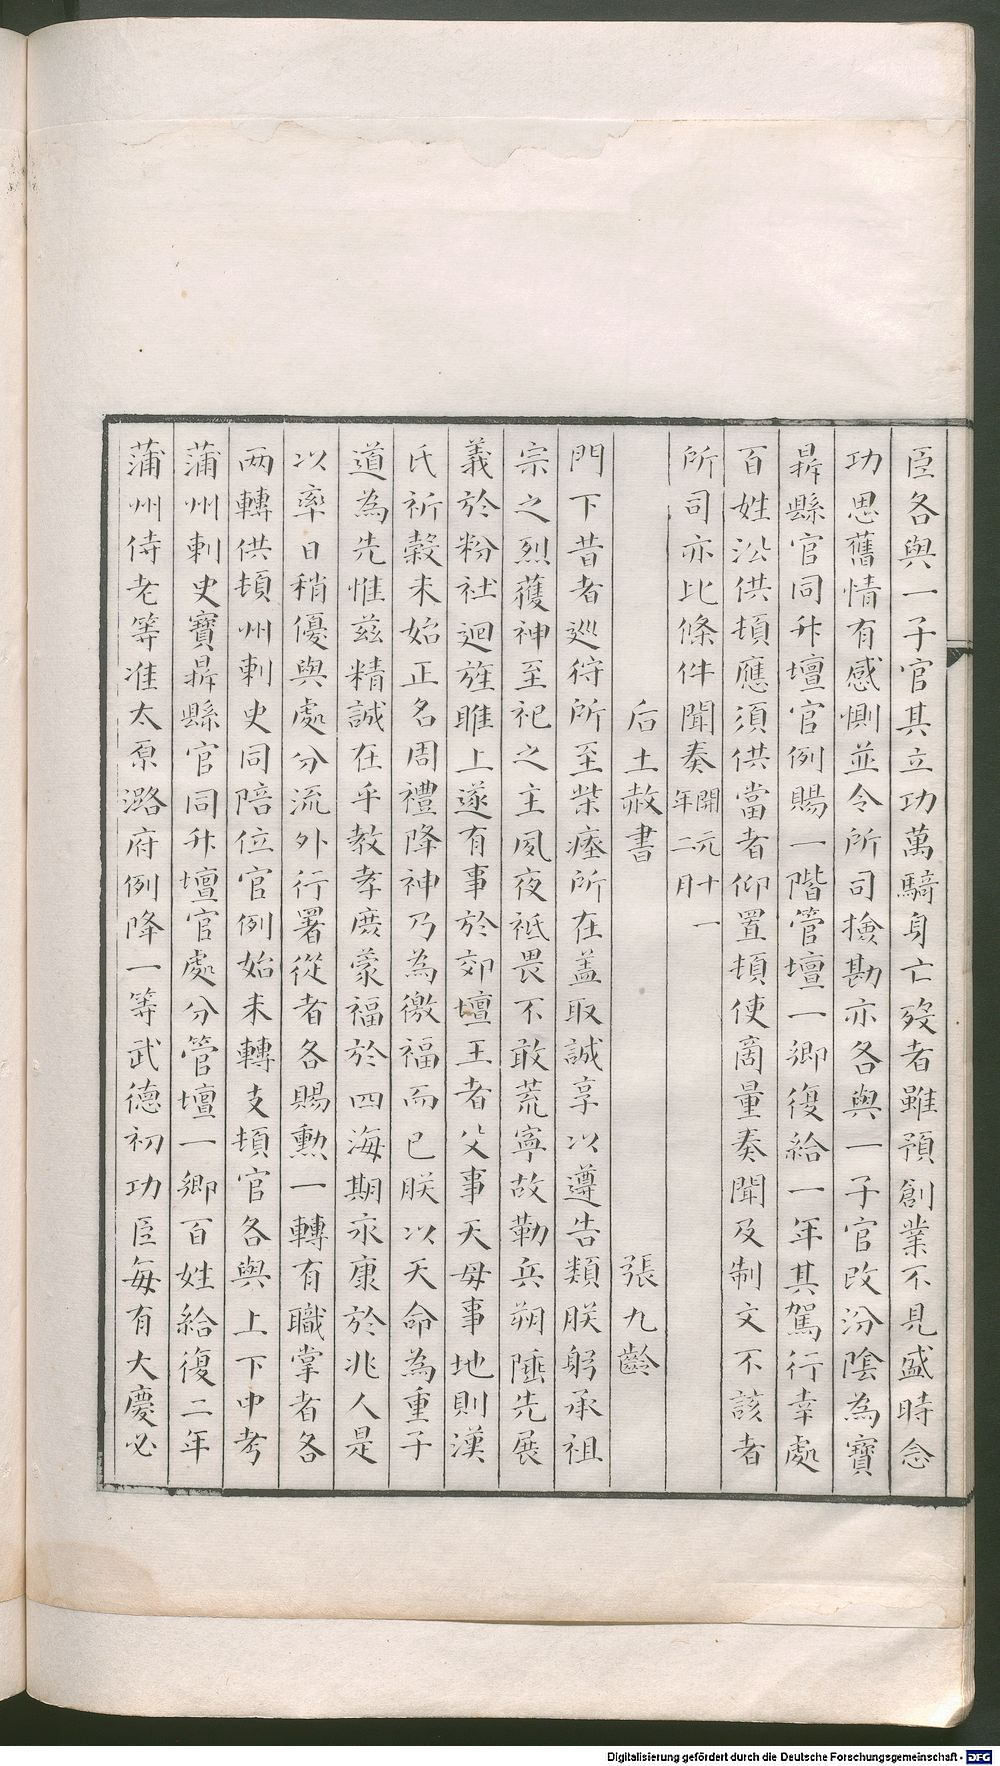 臣各與一子官其立功萬騎身亡歿者雖預創業不見盛時念
功思舊情有感惻並令所司撿勘亦各與一子官改汾陰為寶
鼎縣官同升壇官例賜一階管壇一鄉復給一年其駕行幸處
百姓㳂供頓應須供當者仰置頓使啇量奏聞及制文不該者
所司亦比條件聞奏開元十一年二月
后土赦書 張九齡
門下昔者巡狩所至柴瘞所在盖取誠享以遵告類朕躬承祖
宗之烈獲神至祀之主夙夜祗畏不敢荒寧故勒兵朔陲先展
義於粉社迴旌雎上遂有事於郊壇王者父事天母事地則漢
氏祈穀未始正名周禮降神乃為徼福而已朕以天命為重子
道為先惟茲精誠在乎教孝庶蒙福於四海期永康於兆人是
以率日稍優與處分流外行署從者各賜勲一轉有職掌者各
两轉供頓州刺史同陪位官例始末轉支頓官各與上下中考
蒲州刺史寶鼎縣官同升壇官處分管壇一鄉百姓給復二年
蒲州侍老等准太原潞府例降一等武德初功臣每有大慶必
Digitalisierung gefördert durch die Deutsche Forschungsgemeinschaft - DFG